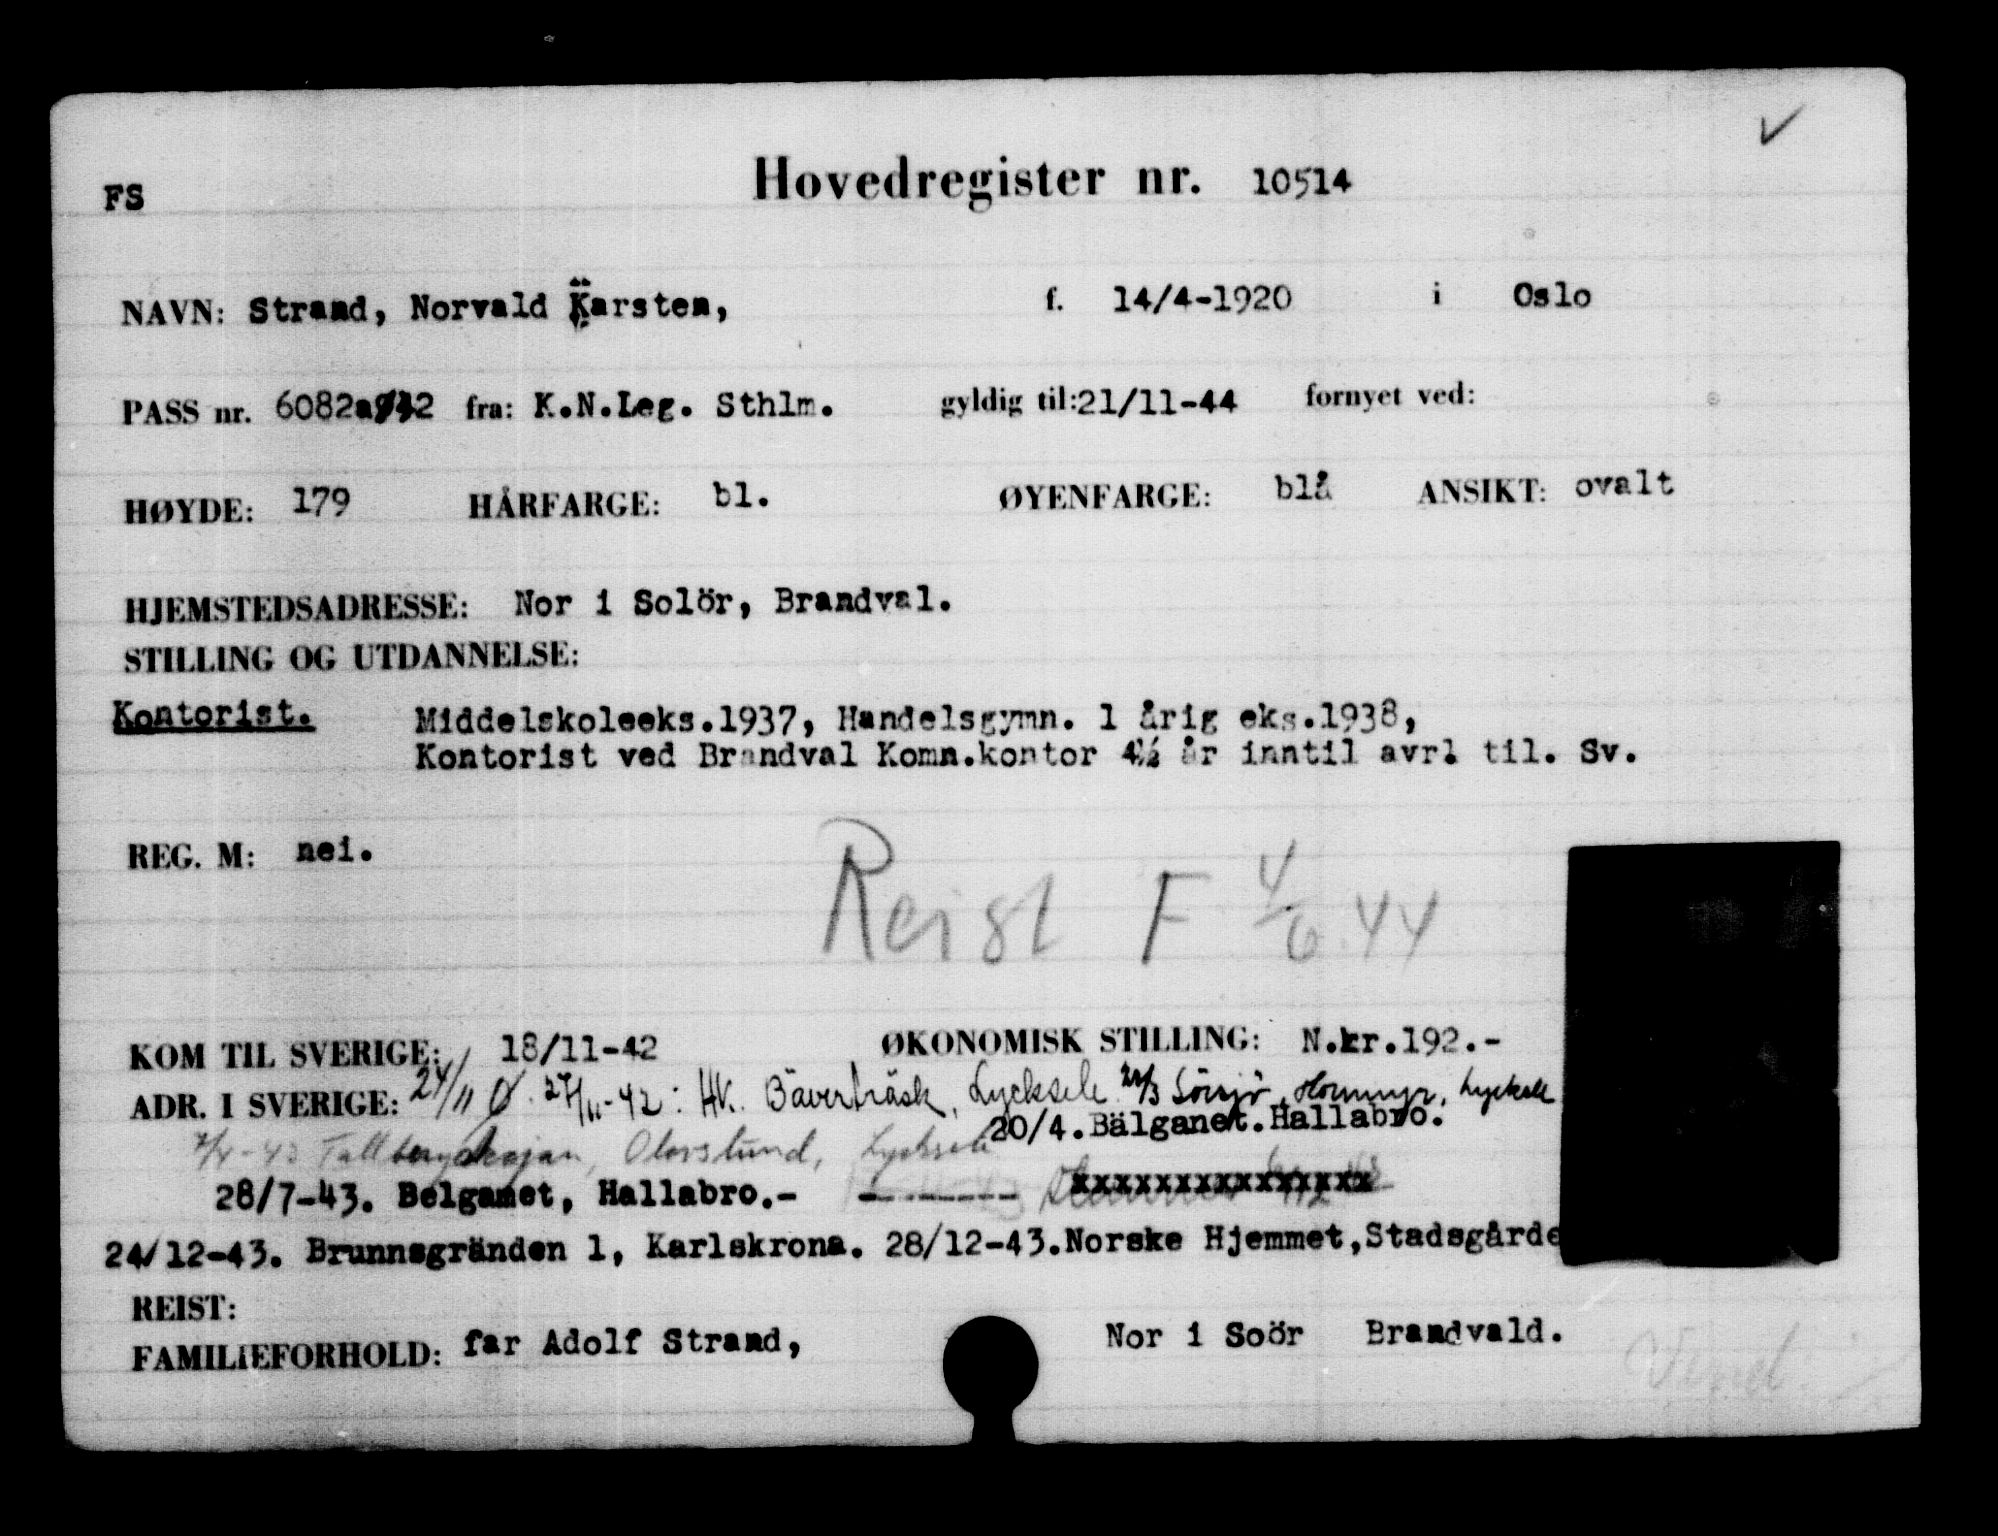 FS
Hovedregister nr. 10514
NAVN: Strand, Norvald Karsten, f. 14/4-1920 i Oslo
PASS nr. 6082a/42 fra: K.N.Leg. Sthlm. gyldig til: 21/11-44 fornyet ved:
HØYDE: 179 HÅRFARGE: bl. ØYENFARGE: blå ANSIKT: ovalt
HJEMSTEDSADRESSE: Nor i Solör, Brandval.
STILLING OG UTDANNELSE:
Kontorist. Middelskoleeks.1937, Handelsgymn. 1 årig eks.1938,
Kontorist ved Brandval Komn.kontor 4½ år inntil avrl til. Sv.
REG. M: nei.
Reist F 4/6 44
KOM TIL SVERIGE: 18/11-42 ØKONOMISK STILLING: N.kr.192.-
ADR. I SVERIGE: 24/11 Ø. 27/11-42: HK. Bäverträsk, Lycksele. Lycksele
20/4. Bälganet. Hallabro.
Olovslund, Lycksele
28/7-43. Belganet, Hallabro.- xxxxxxxxxxxxxxx
24/12-43. Brunnsgränden 1, Karlskrona. 28/12-43.Norske Hjemmet,Stadsgårde
REIST:
FAMILIEFORHOLD: far Adolf Strand, Nor i Soör Brandvald.
Vend